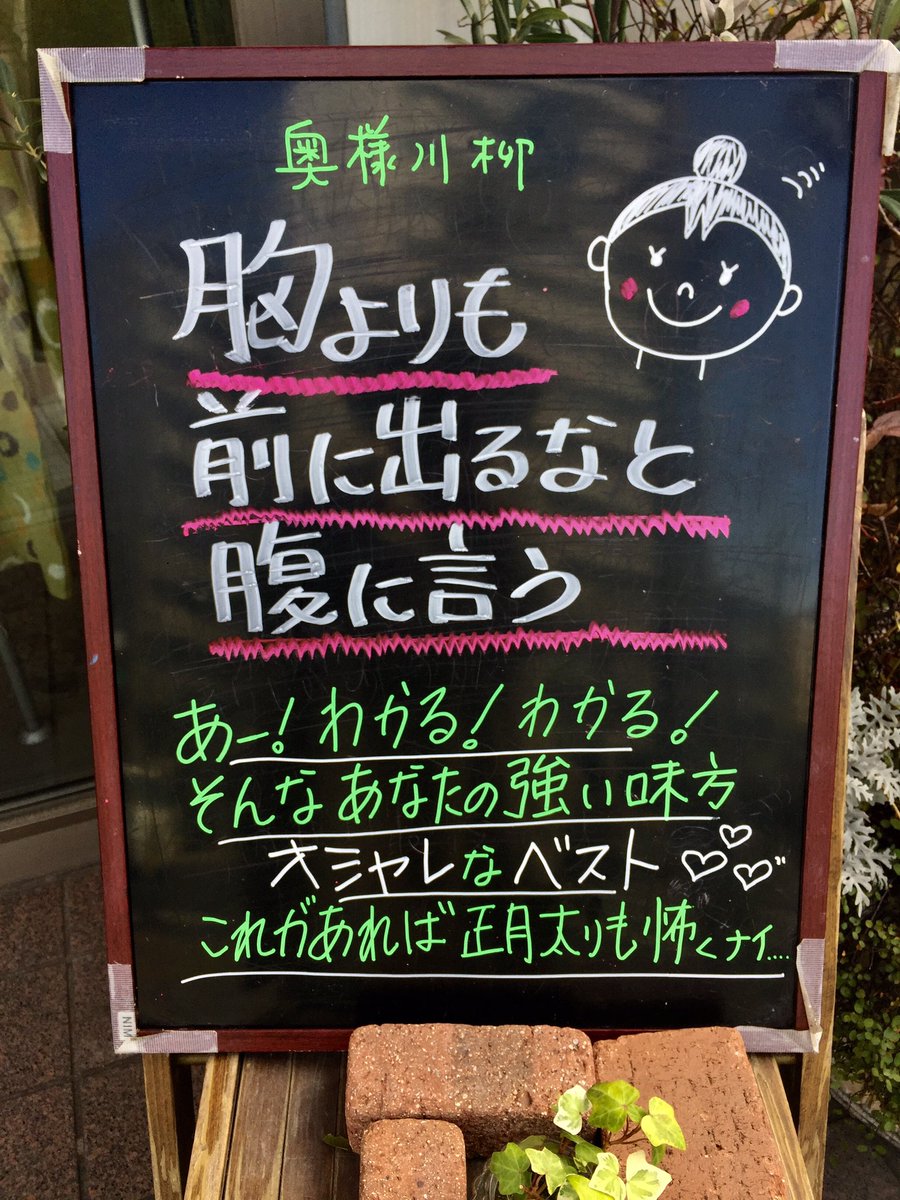 奥様川柳
胸よりも
前に出るなと
腹に言う
あー!わかる!わかる!
そんなあなたの強い味方
オシャレなベスト
これがあれば正月太りも怖くナイ....
NIM